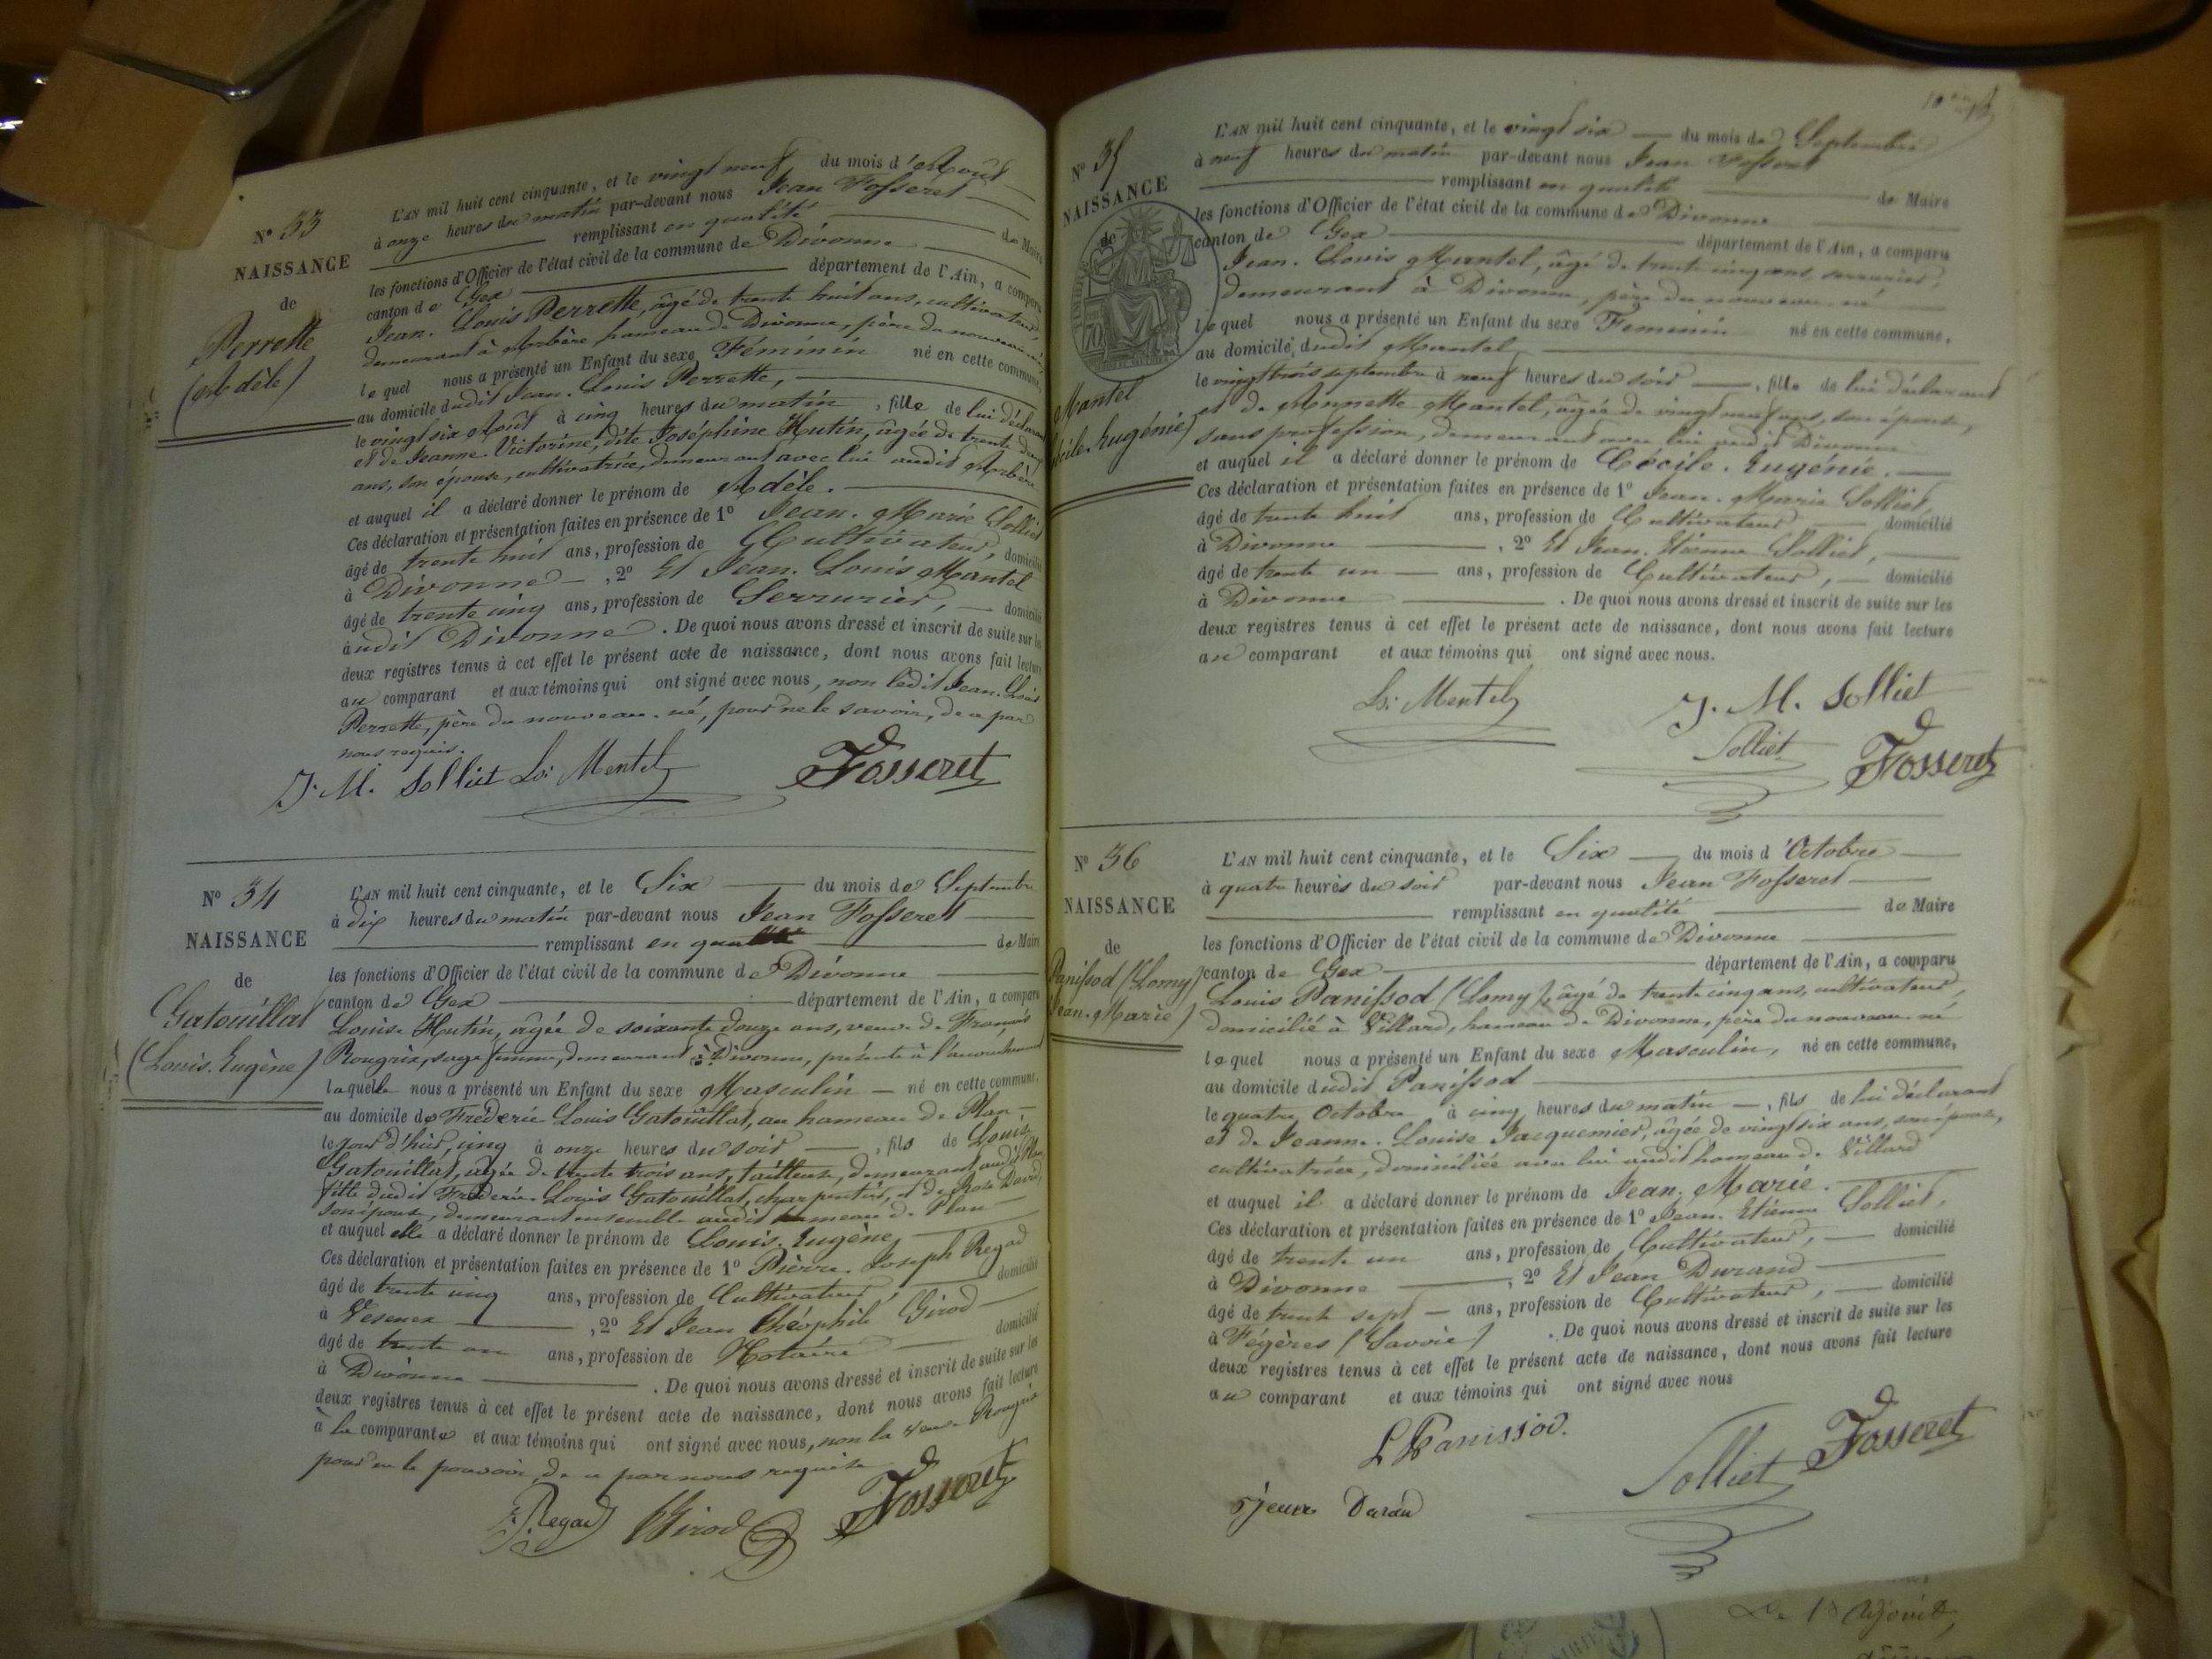 N° 33
NAISSANCE
de
Perrette
(Adèle)
L'AN mil huit cent cinquante, et le vingt neuf du mois d'Aout
à onze heures du matin par-devant nous Jean Fosseret
remplissant en qualité de Maire
les fonctions d'Officier de l'état civil de la commune de Divonne
canton de Gex département de l'Ain, a comparu
Jean-Louis Perrette, âgé de trente huit ans, cultivateur,
demeurant à Arbère hameau de Divonne, père du nouveau-né,
lequel nous a présenté un Enfant du sexe Féminin né en cette commune,
au domicile dudit Jean-Louis Perrette,
le vingt six Aout à cinq heures du matin, fille de lui déclarant
et de Jeanne-Victorine, dite Joséphine Hutin, âgée de trente deux
ans, son épouse, cultivatrice, demeurant avec lui audit Arbère
et auquel il a déclaré donner le prénom de Adèle.
Ces déclaration et présentation faites en présence de 1° Jean-Marie Solliet
âgé de trente huit ans, profession de Cultivateur, domicilié
à Divonne, 2° Et Jean-Louis Mantel
âgé de trente cinq ans, profession de Serrurier, domicilié
audit Divonne. De quoi nous avons dressé et inscrit de suite sur les
deux registres tenus à cet effet le présent acte de naissance, dont nous avons fait lecture
au comparant et aux témoins qui ont signé avec nous, non ledit Jean-Louis
Perrette, père du nouveau-né, pour ne le savoir, de ce par
nous requis.
J. M. Solliet Ls: Mentel Fosseret
N° 34
NAISSANCE
de
Gatouillat
(Louis-Eugène)
L'AN mil huit cent cinquante, et le Six du mois de Septembre
à dix heures du matin par-devant nous Jean Fosseret
remplissant en qualité de Maire
les fonctions d'Officier de l'état civil de la commune de Divonne
canton de Gex département de l'Ain, a comparu
Louise Hutin, âgée de soixante douze ans, veuve de François
Rougrix, sage femme, demeurant à Divonne, présente à l'accouchement
laquelle nous a présenté un Enfant du sexe Masculin né en cette commune,
au domicile de Frédéric Louis Gatouillat, au hameau de Plan
le jour d'hier, cinq à onze heures du soir, fils de Louise
Gatouillat, âgée de trente trois ans, tailleuse, demeurant audit Plan,
fille dudit Frédéric Louis Gatouillat, charpentier, et de Rose David,
son épouse, demeurant ensemble audit hameau de Plan
et auquel elle a déclaré donner le prénom de Louis-Eugène,
Ces déclaration et présentation faites en présence de 1° Pierre-Joseph Regad
âgé de trente cinq ans, profession de Cultivateur, domicilié
à Vesenex, 2° Et Jean Théophile Girod
âgé de trente un ans, profession de Notaire domicilié
à Divonne. De quoi nous avons dressé et inscrit de suite sur les
deux registres tenus à cet effet le présent acte de naissance, dont nous avons fait lecture
à la comparante et aux témoins qui ont signé avec nous, non la veuve Rougrix
pour ne le pouvoir, de ce par nous requise
Regad Girod Fosseret
N° 35
NAISSANCE
de
Mantel
Cécile-Eugénie)
L'AN mil huit cent cinquante, et le vingt six du mois de Septembre
à neuf heures du matin par-devant nous Jean Fosseret
remplissant en qualité de Maire
les fonctions d'Officier de l'état civil de la commune de Divonne
canton de Gex département de l'Ain, a comparu
Jean-Louis Mantel, âgé de trente cinq ans, serrurier,
demeurant à Divonne, père du nouveau-né
lequel nous a présenté un Enfant du sexe Féminin né en cette commune,
au domicile dudit Mantel,
le vingt trois septembre à neuf heures du soir, fille de lui déclarant
et de Annette Mantel, âgée de vingt neuf ans, son épouse,
sans profession, demeurant avec lui audit Divonne
et auquel il a déclaré donner le prénom de Cécile-Eugénie.
Ces déclaration et présentation faites en présence de 1° Jean-Marie Solliet,
âgé de trente huit ans, profession de Cultivateur domicilié
à Divonne, 2° Et Jean-Etienne Solliet,
âgé de trente un ans, profession de Cultivateur, domicilié
à Divonne. De quoi nous avons dressé et inscrit de suite sur les
deux registres tenus à cet effet le présent acte de naissance, dont nous avons fait lecture
au comparant et aux témoins qui ont signé avec nous.
Ls: Mentel J. M. Solliet
Solliet Fosseret
N° 36
NAISSANCE
de
Panissod (Lomy)
Jean-Marie)
L'AN mil huit cent cinquante, et le Six du mois d'Octobre
à quatre heures du soir par-devant nous Jean Fosseret
remplissant en qualité de Maire
les fonctions d'Officier de l'état civil de la commune de Divonne
canton de Gex département de l'Ain, a comparu
Louis Panissod (Lomy), âgé de trente cinq ans, cultivateur,
domicilié à Villard, hameau de Divonne, père du nouveau-né
lequel nous a présenté un Enfant du sexe Masculin, né en cette commune,
au domicile dudit Panissod
le quatre Octobre à cinq heures du matin, fils de lui déclarant
et de Jeanne-Louise Jacquemier, âgée de vingt six ans, son épouse,
cultivatrice, domiciliée avec lui audit hameau de Villard
et auquel il a déclaré donner le prénom de Jean-Marie.
Ces déclaration et présentation faites en présence de 1° Jean-Etienne Solliet,
âgé de trente un ans, profession de Cultivateur, domicilié
à Divonne, 2° Et Jean Durand
âgé de trente sept ans, profession de Cultivateur, domicilié
à Fégères (Savoie). De quoi nous avons dressé et inscrit de suite sur les
deux registres tenus à cet effet le présent acte de naissance, dont nous avons fait lecture
au comparant et aux témoins qui ont signé avec nous
L Panissod.
Solliet Fosseret